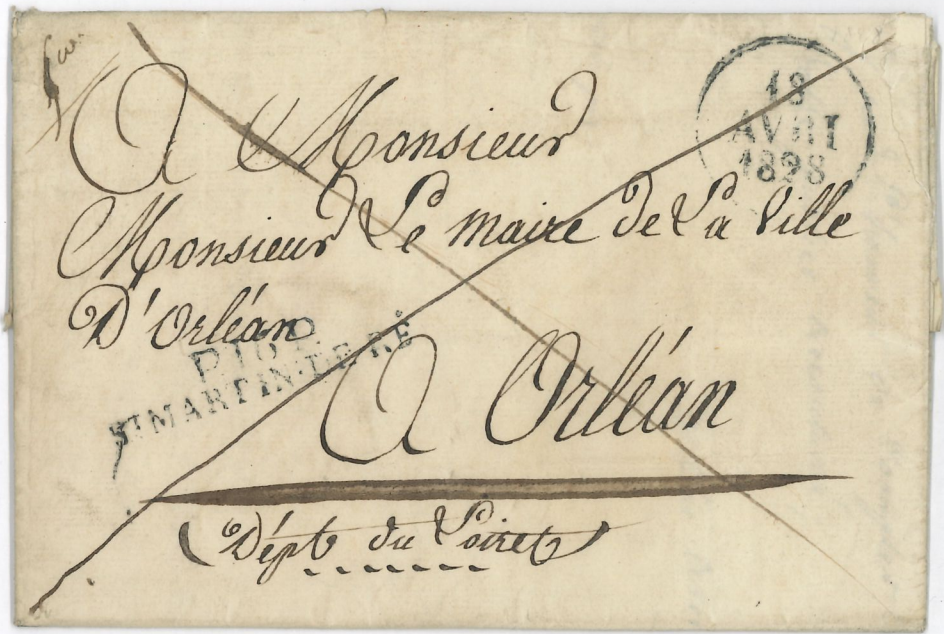 A Monsieur
18
AVRI
1828
Monsieur Le Maire de La Ville
D'Orléan
P.16.P.
ST MARTIN-DE-RÉ
A Orléan
(Dépt du Loiret)